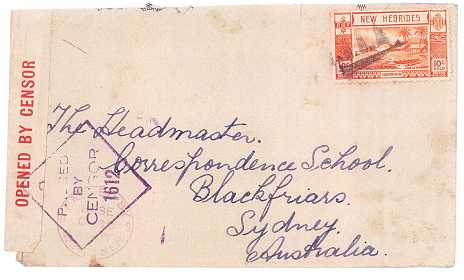 NEW HEBRIDES
10c
OPENED BY CENSOR
PASSED
BY
CENSOR
1612
The Headmaster.
Correspondence School.
Blackfriars.
Sydney.
Australia.